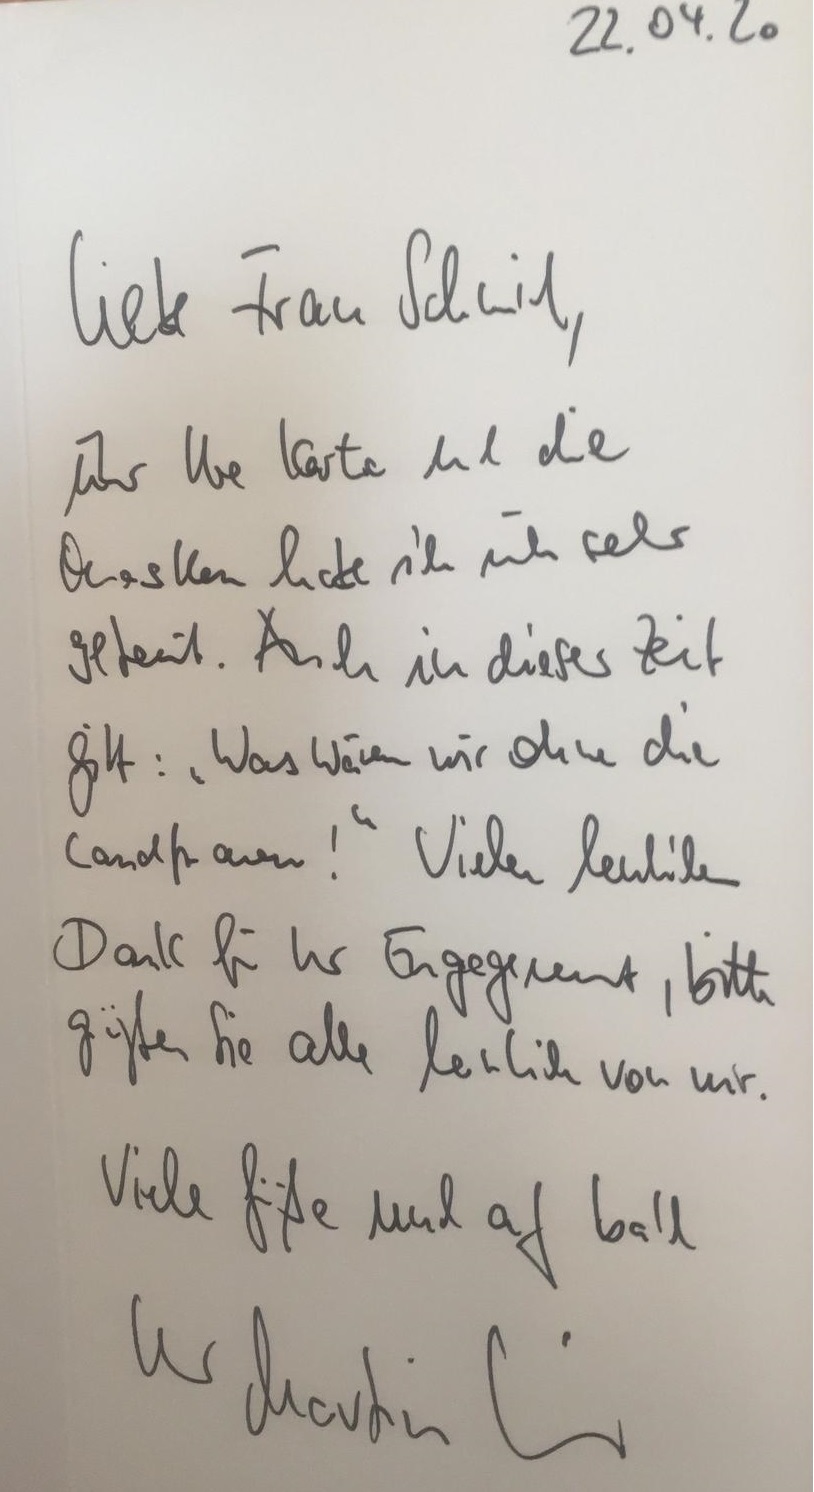 22.04.20
Liebe Frau Schmid,
über Ihre Karte und die
Masken habe ich mich sehr
gefreut. Auch in dieser Zeit
gilt: „Was wären wir ohne die
Landfrauen!“ Vielen herzlichen
Dank für Ihr Engagement, bitte
grüßen Sie alle herzlich von mir.
Viele Grüße und auf bald
Ihr Martin